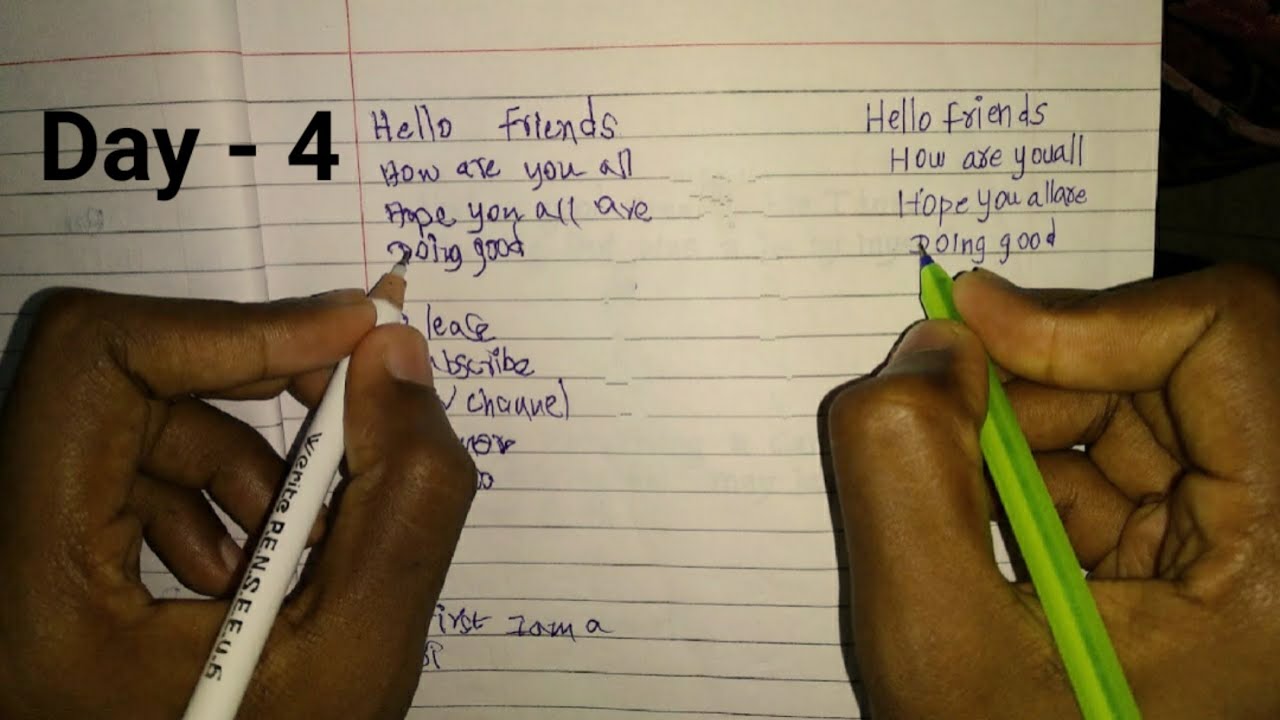 Day - 4
Hello Friends
How are you all
Hope you all are
Doing good
lease
ubscribe
channel
First I am a
Hello Friends
How are youall
Hope you allare
Doing good
Werite P.E.N.S.E.E.U.5